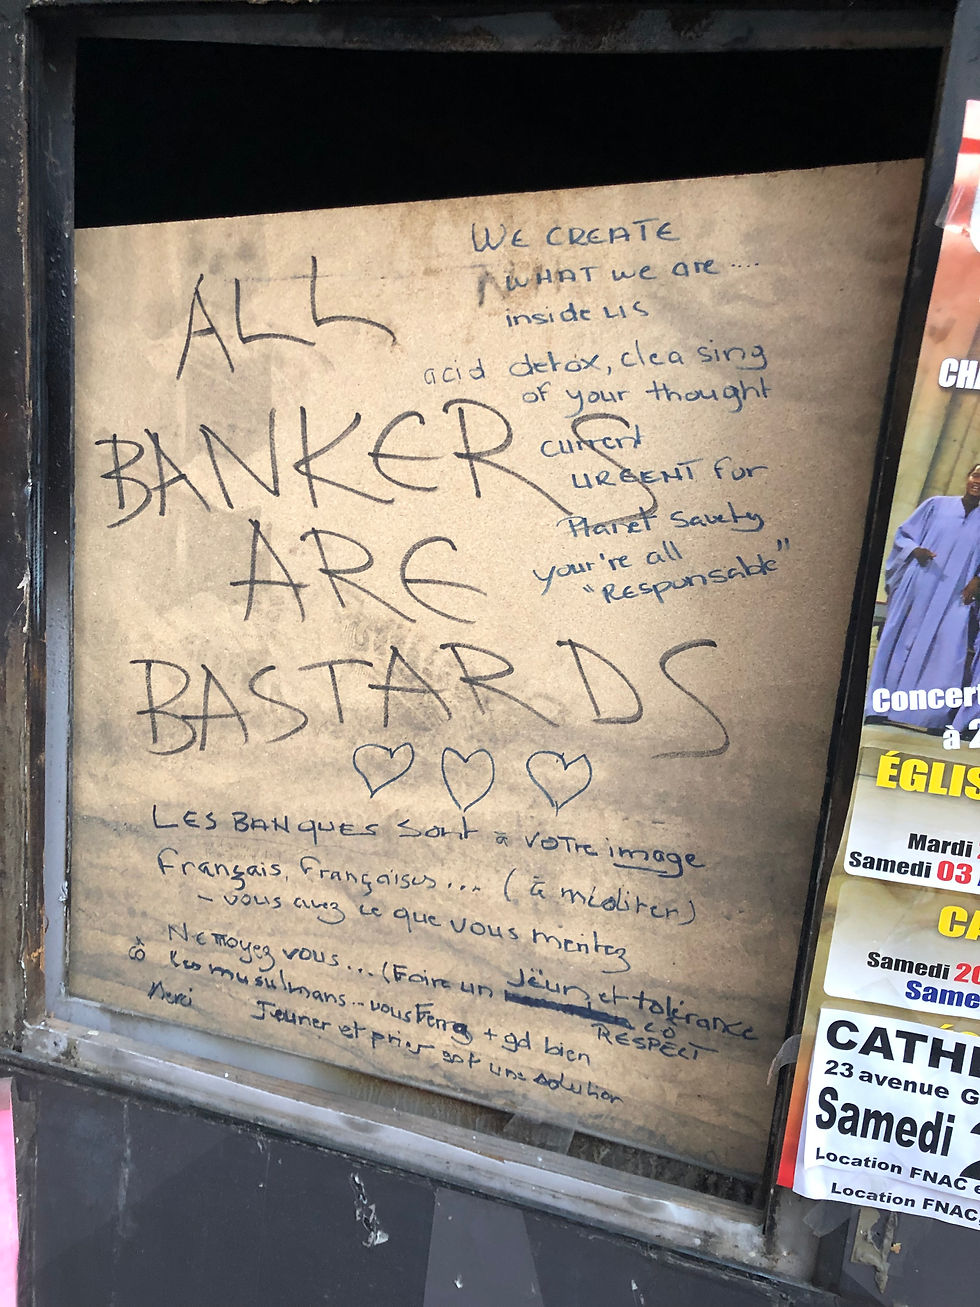 WE CREATE
WHAT we are ....
inside us
acid detox, clea sing
of your thought
current
URGENT fur
Planet Savety
your're all
"Responsable"
ALL
BANKERS
ARE
BASTARDS
LES BANQUES Sont à VOTre image
Français, Françaises... (à méditer)
- vous avez ce que vous meritez
Nettoyez vous... (Faire un Jëun, et tolérance
cô les musulmans.. vous Ferra + gd bien cô RESPECT
Merci Jeuner et prier est une solution
CHA
Concert
à 2
ÉGLIS
Mardi
Samedi 03
CA
Samedi 20
Same
CATHE
23 avenue G
Samedi 2
Location FNAC e
Location FNAC,